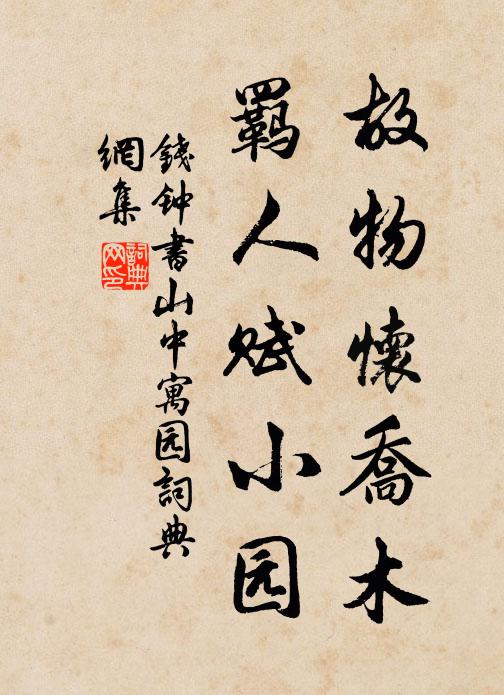 故物懷喬木
羈人赋小园
錢钟書山中寓园詞典
網集
詞典
网印